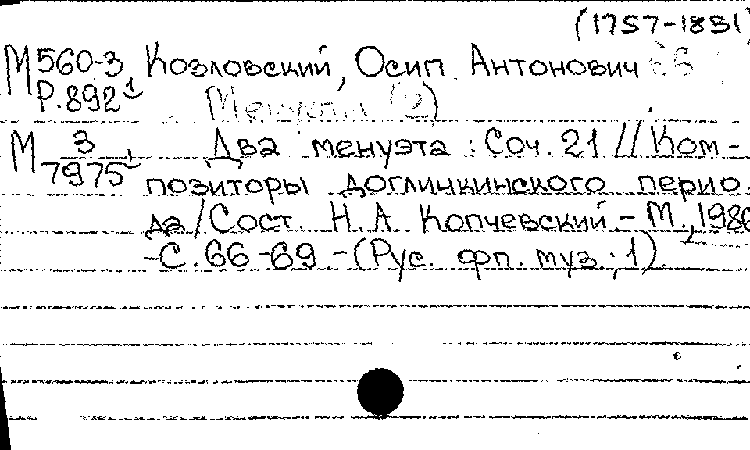 (1757-1831)
М560-3 Козловский, Осип Антонович
Р.892 Менуэты (2)
М 3/7975 Два менуэта : Соч. 21 // Ком-
позиторы доглинкинского перио-
да / Сост. Н. А. Копчевский - М., 1986
-С. 66-69 - (Рус. фп. муз.; 1)